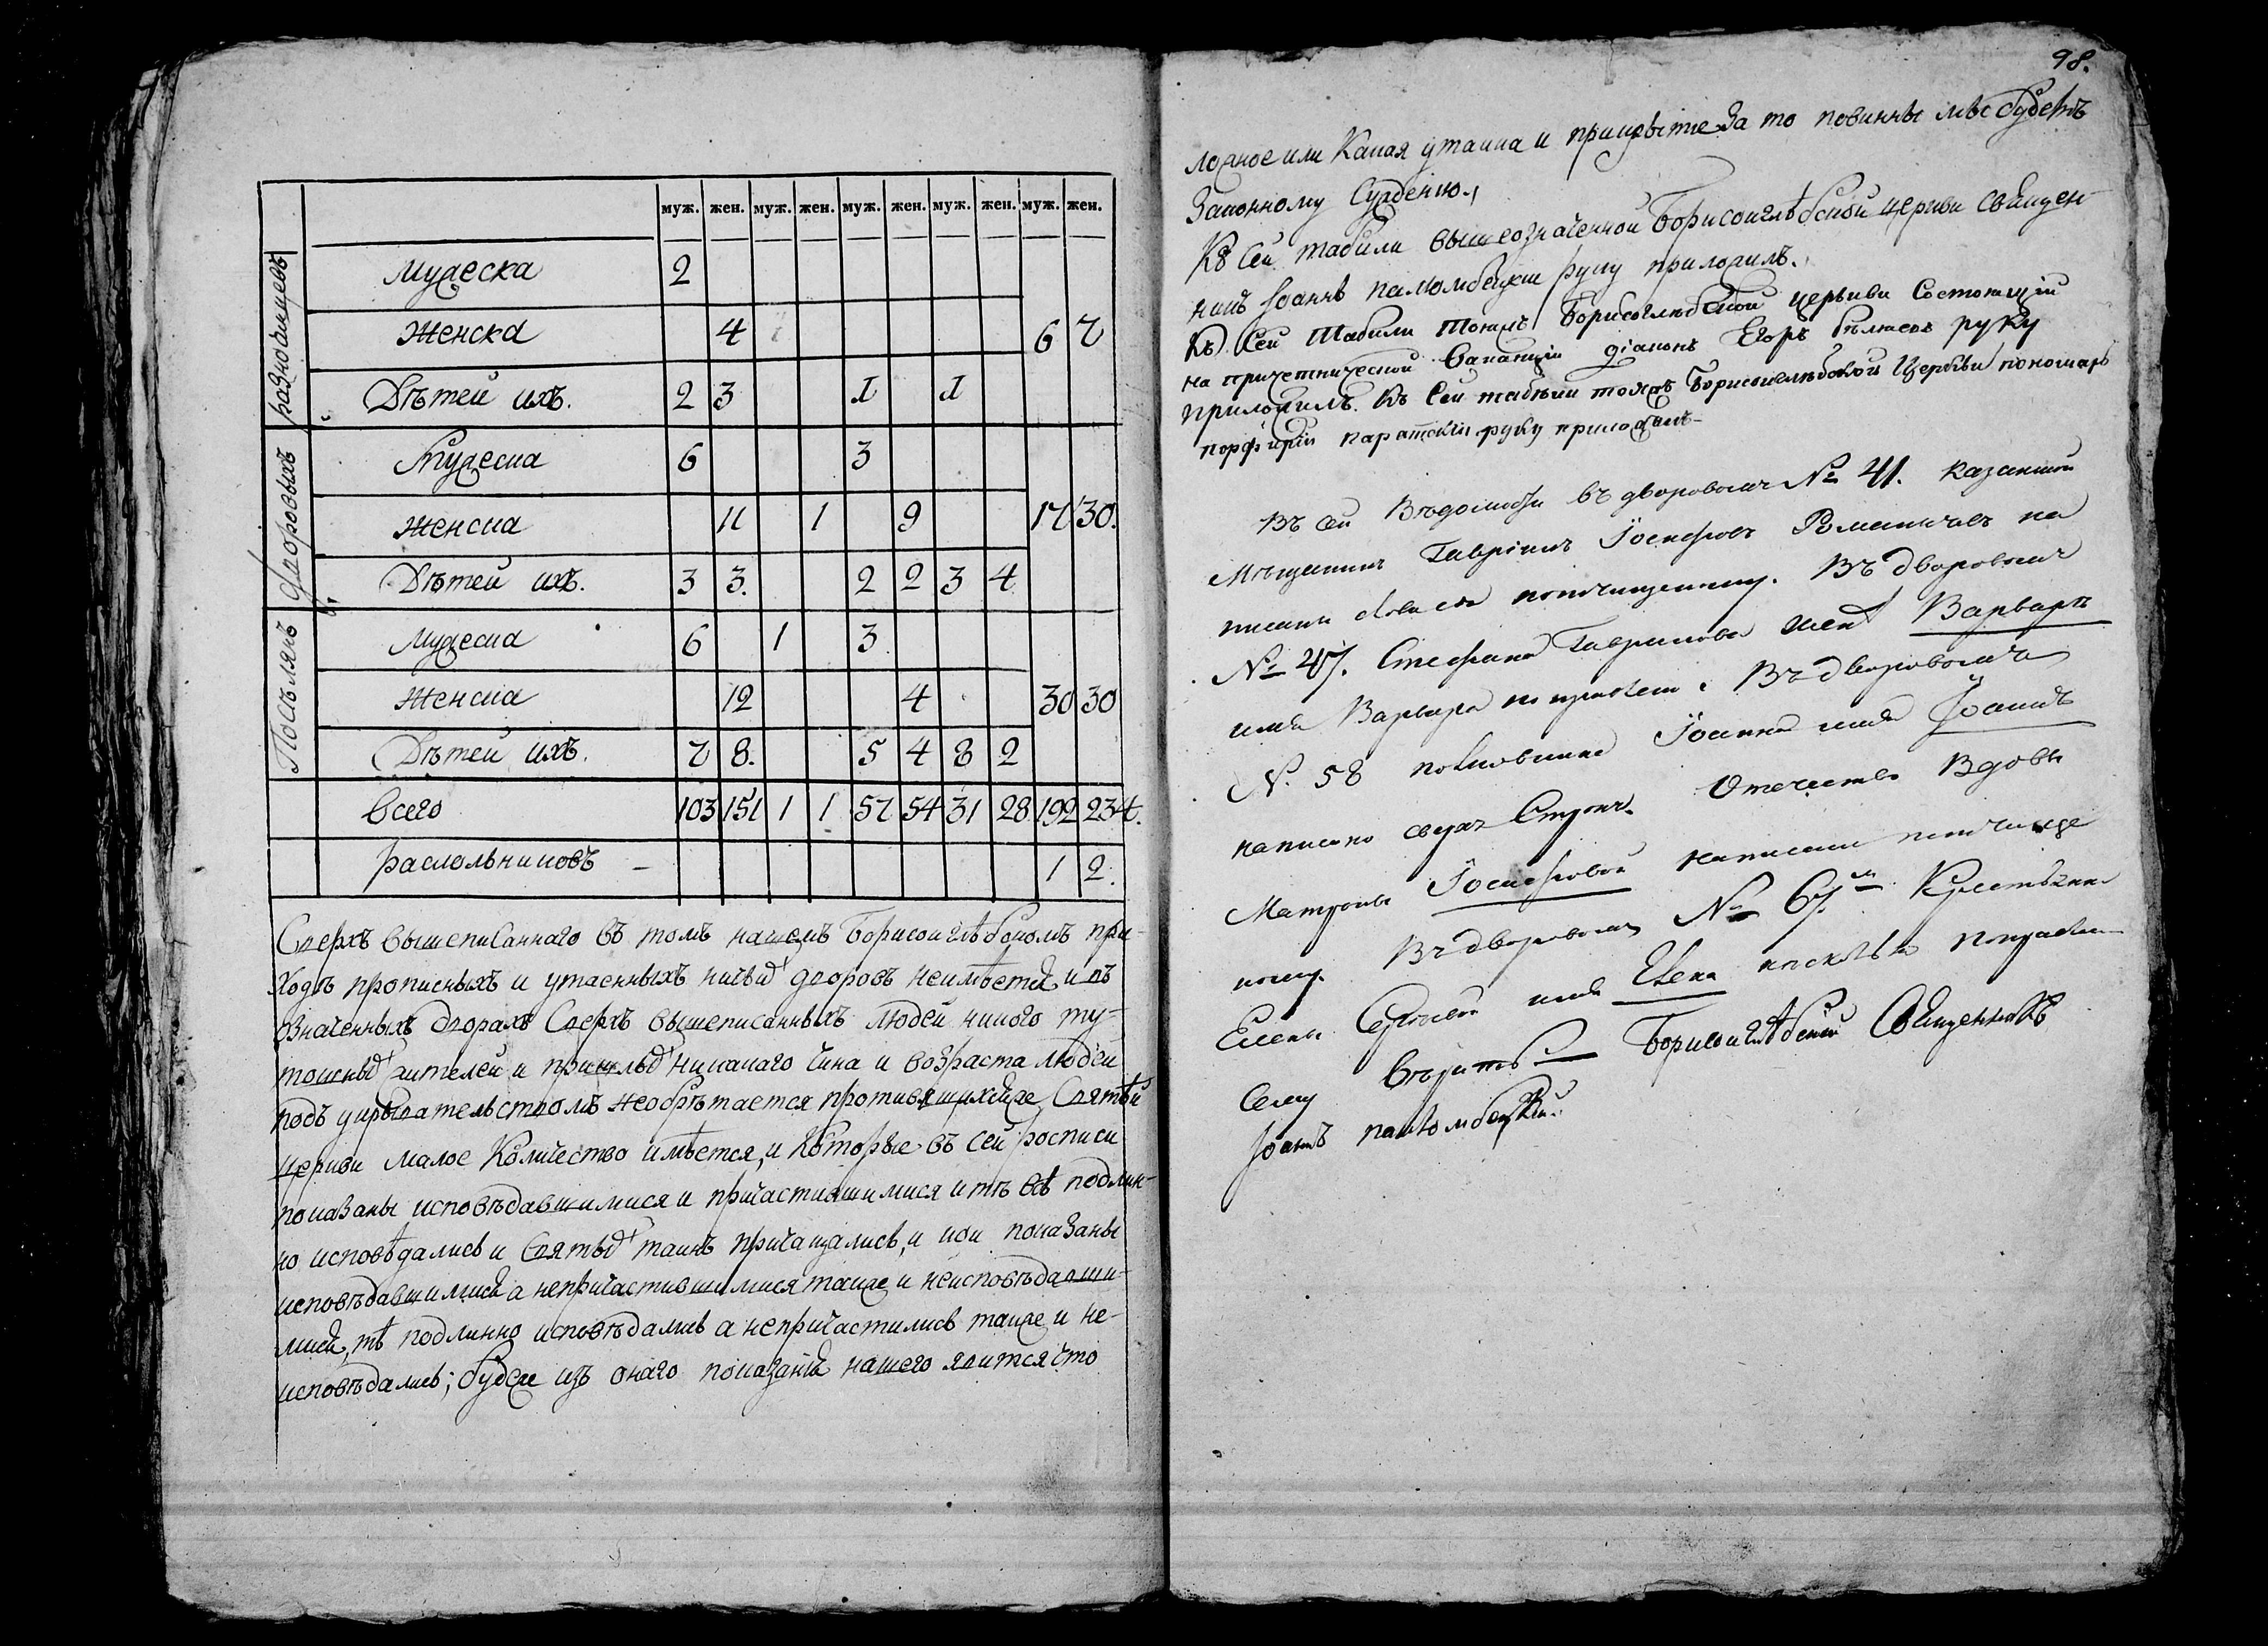 муж. жен. муж. жен. муж. жен. муж. жен. муж. жен.
разночинцевъ
Мужеска 2
Женска 4 6 7
Дѣтей ихъ. 2 3 1 1
дворовыхъ
Мужеска 6 3
Женска 11 1 9 17 30.
Дѣтей ихъ. 3 3. 2 2 3 4
Посѣлянъ
Мужеска 6 1 3
Женска 12 4 30 30
Дѣтей ихъ. 7 8. 5 4 8 2
Всего 103 151 1 1 57 54 31 28 192 234.
Раскольниковъ – 1 2.
Сверхъ вышеписаннаго въ томъ нашемъ Борисоглѣбскомъ при-
ходѣ прописныхъ и утаенныхъ ничьихъ дворовъ неимѣется и въ
означенныхъ дворахъ Сверхъ вышеписанныхъ людей никого ту-
тошныхъ жителей и пришлыхъ никакаго чина и возраста людей
подъ укрывательствомъ необрѣтается противящихсяже Святѣй
церкви малое Количество имѣется, и Которые въ сей росписи
показаны исповѣдавшимися и причастившимися и тѣ всѣ подлин-
но исповѣдались и Святыхъ таинъ причащались, и кои показаны
исповѣдавшимися а непричастившимися также и неисповѣдавши-
мися, тѣ подлинно исповѣдались а непричастились также и не-
исповѣдались; будеже изъ онаго показанія нашего явится что
98.
ложное или Какая утайка и прикрытие За то повинны мы будемъ
Законному Сужденію.
Къ Сей табели вышеозначенной Борисоглѣбской церкви священ-
никъ Іоаннъ Паломбецкій руку приложилъ.
Къ Сей табели тояжъ Борисоглѣбской церькви Состоящій
на причетнической Ваканціи діаконъ Егоръ руку
приложилъ. Къ Сей табели тояжъ Борисоглѣбской Церькви пономарь
порфирій паратскій руку приложилъ
Въ сей Вѣдомости въ дворовомъ № 41. Казанской
Мѣщанинъ Гавріилъ Іосифовъ на
писанъ по почищенному. Въ дворовомъ
№ 47. Стефана Гаврилова жены Варвары
имя Варвара по правкѣ. Въ дворовомъ
№. 58 Іоанна имя Іоаннъ
написано сверхъ Строки. Отечество Вдовы
Матроны Іосифовой написано почищен
ному. Въ дворовомъ № 67.мъ Крестьянки
Елены Сергѣевой имя Елена
Сему вѣрить Борисоглѣбскій Священникъ
Іоаннъ Паломбецкій.